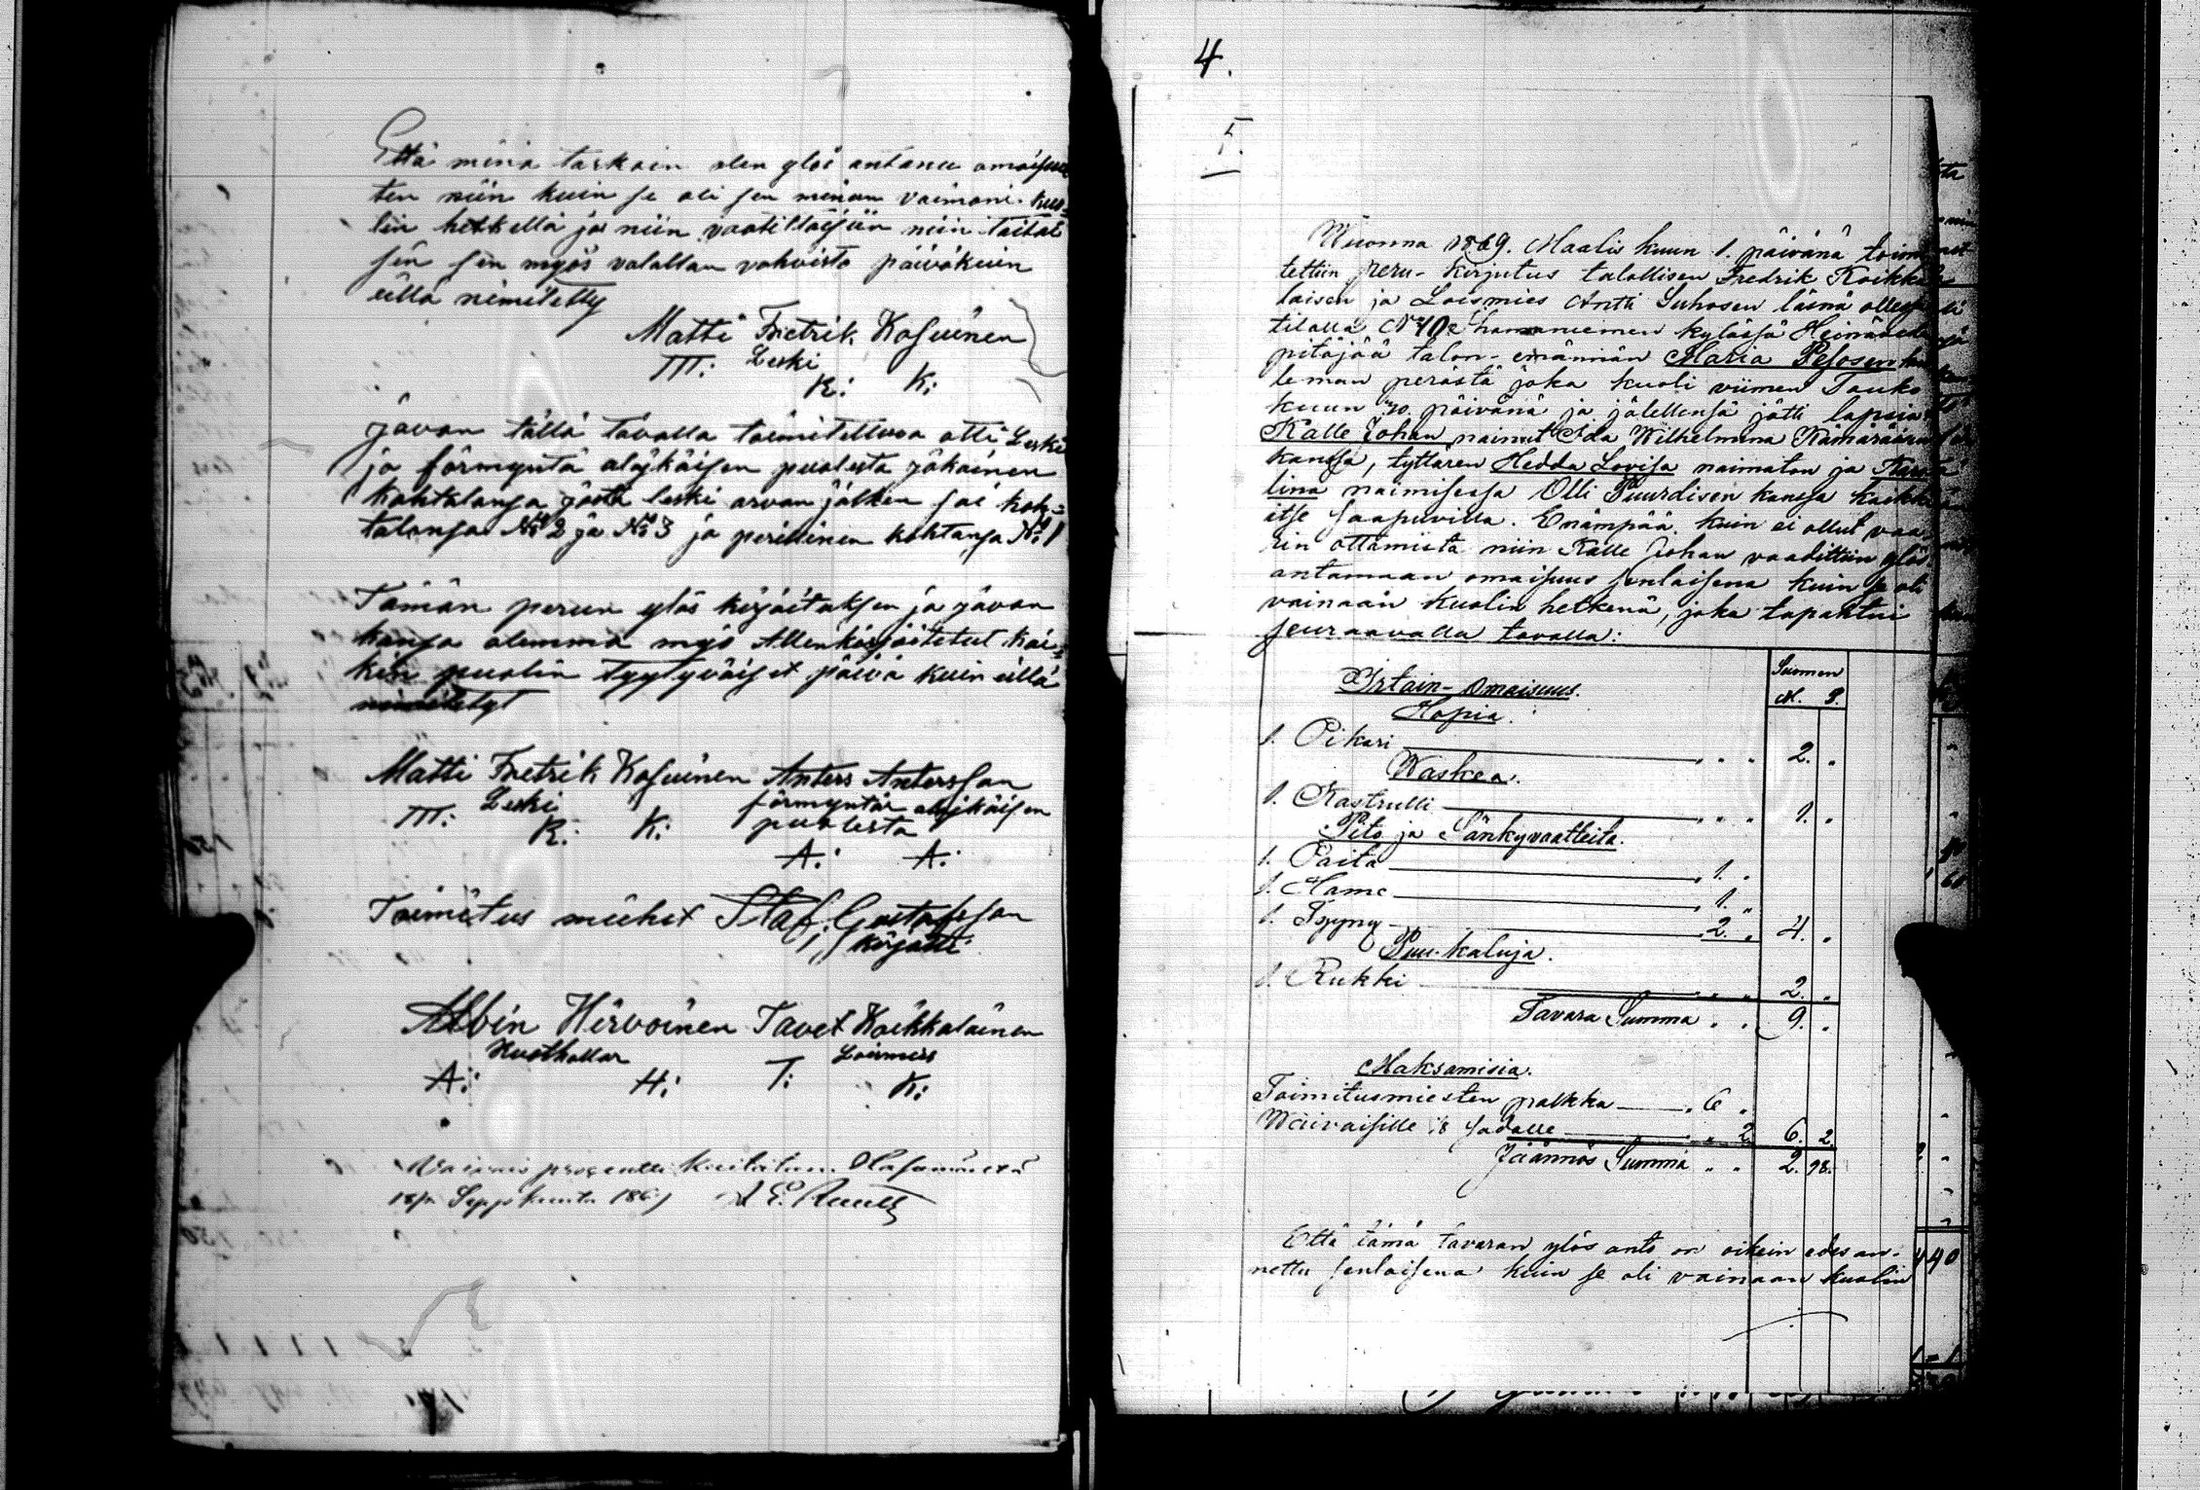 Että minä tarkoin olen ylös antanu omaisuu
ten niin kuin se oli sen minun vaimoni kuo=
lin hetkellä ja niin vaatittaisiin niin taitat
sen sen myös valallan vahvista päiväkuin
üllä nimitetty
Matti Fretrik Kosuinen
Leski
M: R: K:
javon tällä tavalla toimitettua otti Leski
ja förmyntä alajkäisen puolesta jokainen
kohtalansa josta leski arvan jälken sai koh=
talansa No 2 ja No 3 ja perillinen kohtansa No 1
Tämän perun ylös kirjoituksen ja javon
kansa olemma myö Allenkirjoitetut kai=
kin puolin tyytyväiset päivä kuin üllä
nimitetyt
Matti Fretrik Kosuinen Anters Antersson
Leski förmyntär alajkäisen
M: R: K: puolesta
A: A:
Toimitus miehet Staf: Gustafsson
kirjotti
Albin Hirvoinen Tavet Koikkalainen
Loismies
A: H: T: K:
prosentti kuitataan
Syys kuuta
4.
5.
Wuonna 1869. Maalis kuun 1. päivänä toimi
tettiin peru-kirjutus talollisen Fredrik Koikka
laisen ja Loismies Antti Suhosen läsnä ollessa
tilalla No 10 kylässä Heinäveden
pitäjää talon-emännän Maria Pesosen kuo
leman perästä joka kuoli viimen Touko
kuun 30. päivänä ja jälellensä jätti lapsia
Kalle Johan nainut Ida Wilhelmina Kämäräisen
kanssa, tyttären Hedda Lovisa naimaton ja Karo
lina naimisessa Olli Puurdisen kanssa kaikki
itse saapuvilla. Enämpää kuin ei ollut vaa
rin ottamista niin Kalle Johan vaadittiin ylös
antamaan omaisuus senlaisena kuin se oli
vainaan kuolin hetkenä, joka tapahtui
seuraavalla tavalla:
Suomen
Irtain-omaisuus. M. P.
Hopia.
1. Pikari 2. "
Waskea.
1. Kastrulli 1. "
Pito ja Sänkyvaatteita.
1. Paita 1. "
1. Hame 1. "
1. Tyyny 2. " 4. "
Puu-kaluja.
1. Rukki 2. "
Tavara Summa 9. "
Maksamisia.
Toimitusmiesten palkka 6 "
Waivaisille 1/8 sadalle " 2 6. 2.
Jäännös Summa 2. 98.
Että tämä tavaran ylös anto on oikein edes an-
nettu senlaisena kuin se oli vainaan kuolin
440